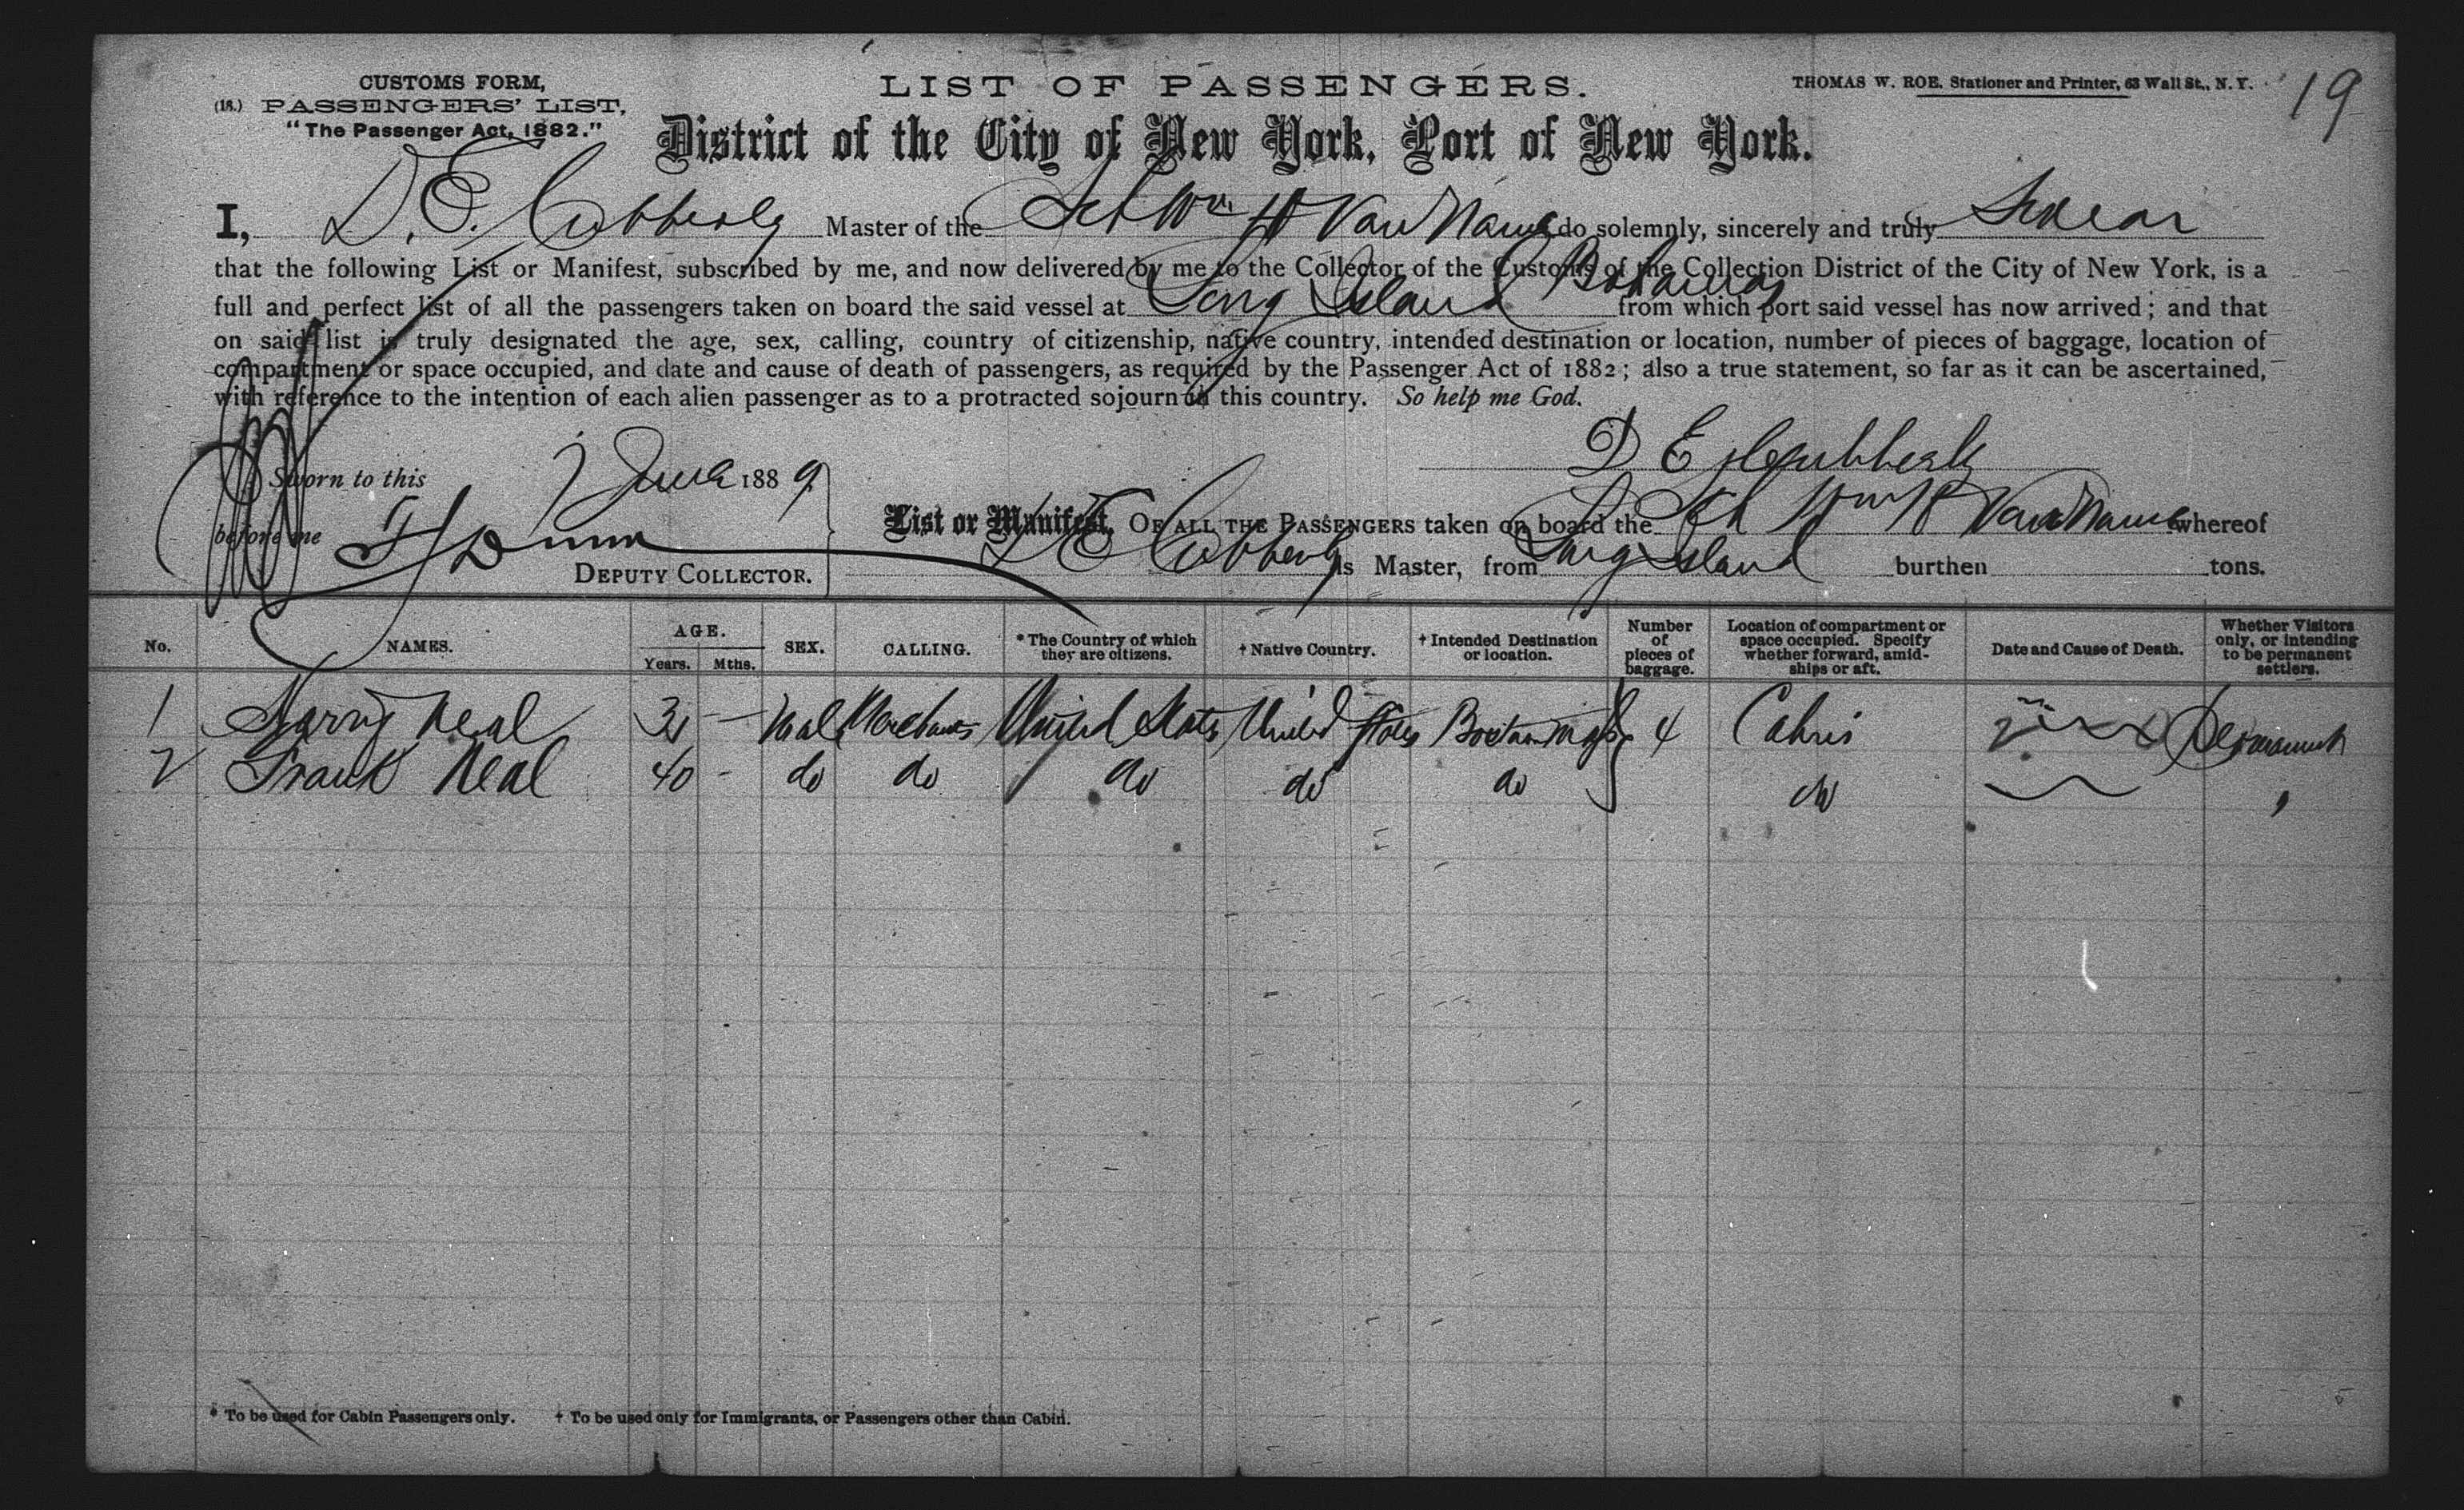 CUSTOMS FORM,
(18.) PASSENGERS' LIST,
"The Passenger Act, 1882."
LIST OF PASSENGERS.
THOMAS W. ROE. Stationer and Printer, 63 Wall St., N. Y.
19
District of the City of New York, Port of New York.
I, D. E. Cubberly Master of the Sch Wm H Van Name do solemnly, sincerely and truly Swear
that the following List or Manifest, subscribed by me, and now delivered by me to the Collector of the Customs of the Collection District of the City of New York, is a
full and perfect list of all the passengers taken on board the said vessel at Long Island Bahamas from which port said vessel has now arrived; and that
on said list is truly designated the age, sex, calling, country of citizenship, native country, intended destination or location, number of pieces of baggage, location of
compartment or space occupied, and date and cause of death of passengers, as required by the Passenger Act of 1882; also a true statement, so far as it can be ascertained,
with reference to the intention of each alien passenger as to a protracted sojourn in this country. So help me God.
D E Cubberly
Sworn to this June 1889
before me
DEPUTY COLLECTOR.
List or Manifest, OF ALL THE PASSENGERS taken on board the Sch Wm H Van Name whereof
D E Cubberly is Master, from Long Island burthen tons.
No. NAMES. AGE. Years. Mths. SEX. CALLING. * The Country of which they are citizens. † Native Country. † Intended Destination or location. Number of pieces of baggage. Location of compartment or space occupied. Specify whether forward, amidships or aft. Date and Cause of Death. Whether Visitors only, or intending to be permanent settlers.
1 Harry Neal Male Merchants United States United States Boston Mass 4 Cabin Permanent
2 Frank Neal 40 - do do do do do do "
* To be used for Cabin Passengers only. † To be used only for Immigrants, or Passengers other than Cabin.